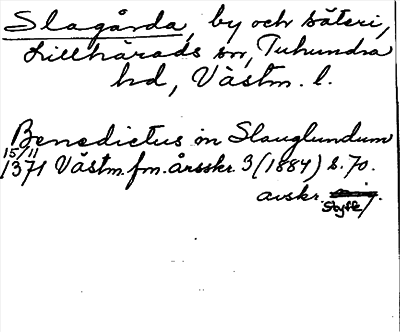 Slagårda, by och säteri,
Lillhärads sn, Tuhundra
hd, Västm. l.
Benedictus in Slauglundum
15/11
1371 Västm. fm. årsskr. 3 (1884) s. 70.
avskr.
Styffe